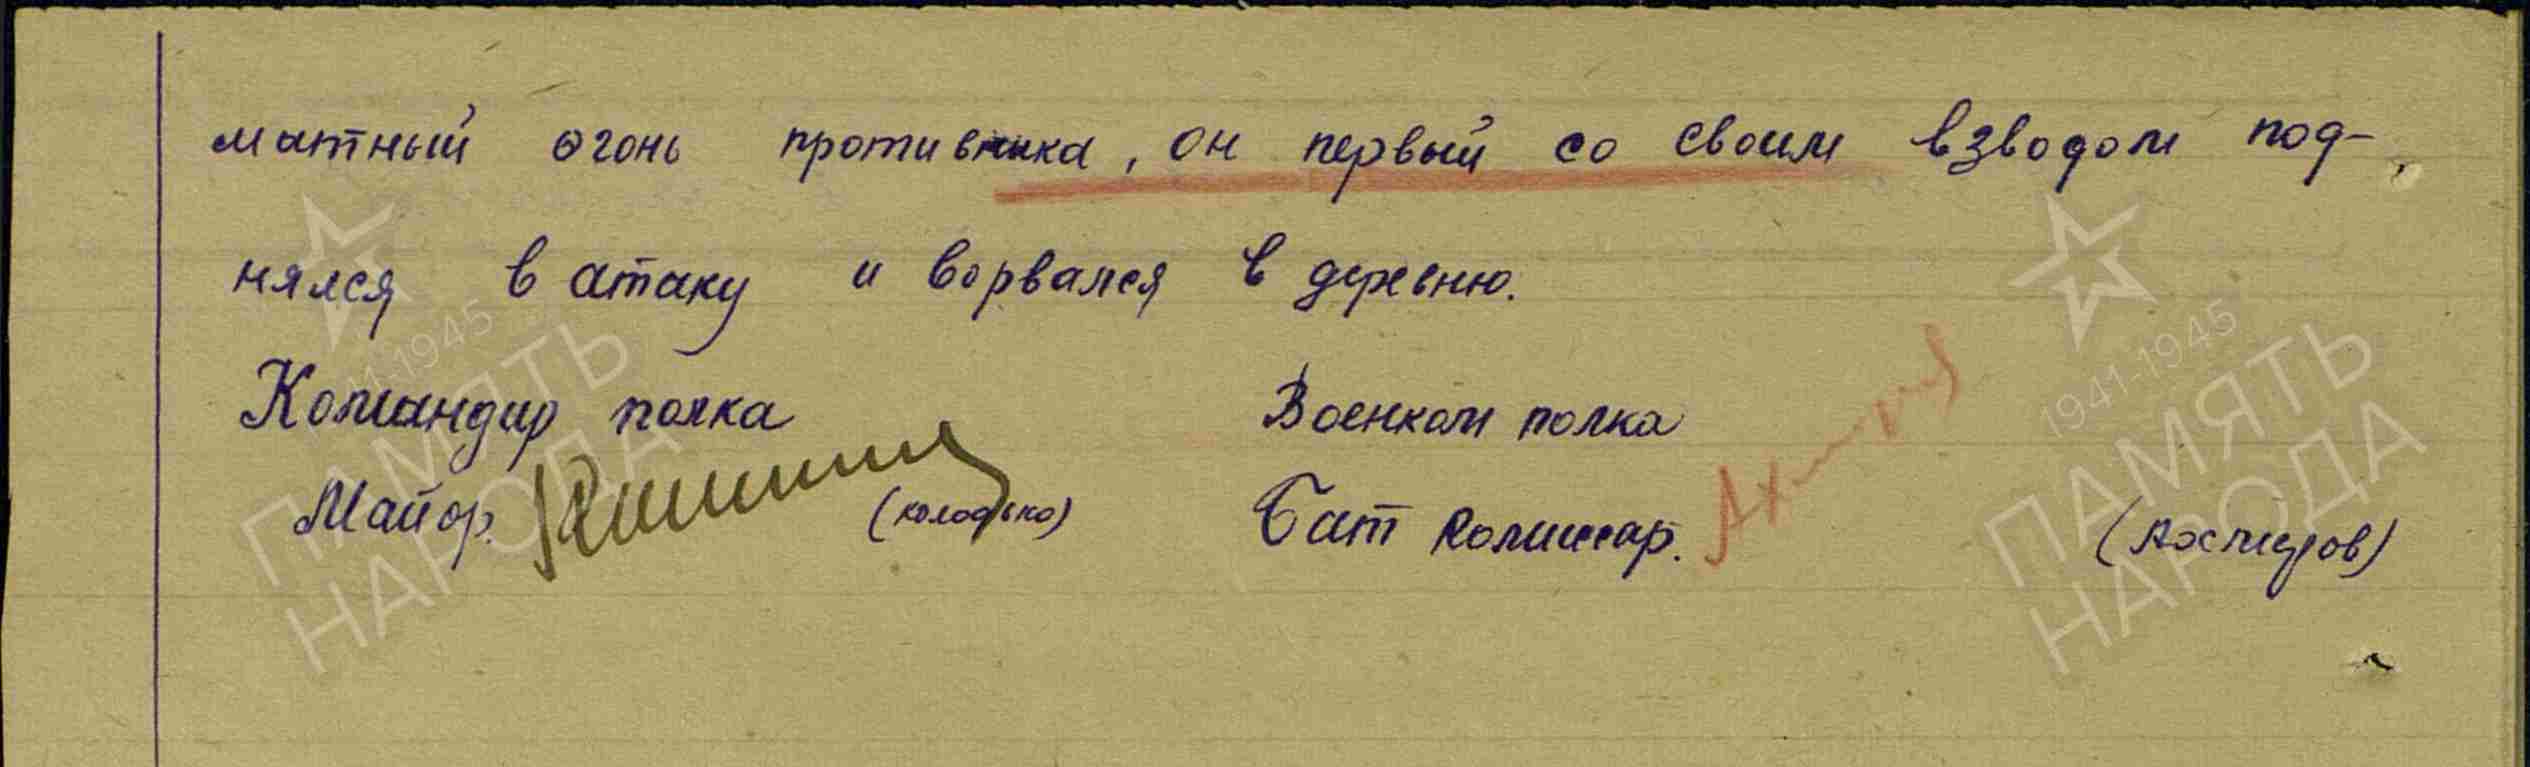 матный огонь противника, он первый со своим взводом под-
нялся в атаку и ворвался в деревню.
Командир полка Военком полка
Майор. (колодько) Бат комиссар.
1941-1945
ПАМЯТЬ
НАРОДА
1941-1945
ПАМЯТЬ
НАРОДА